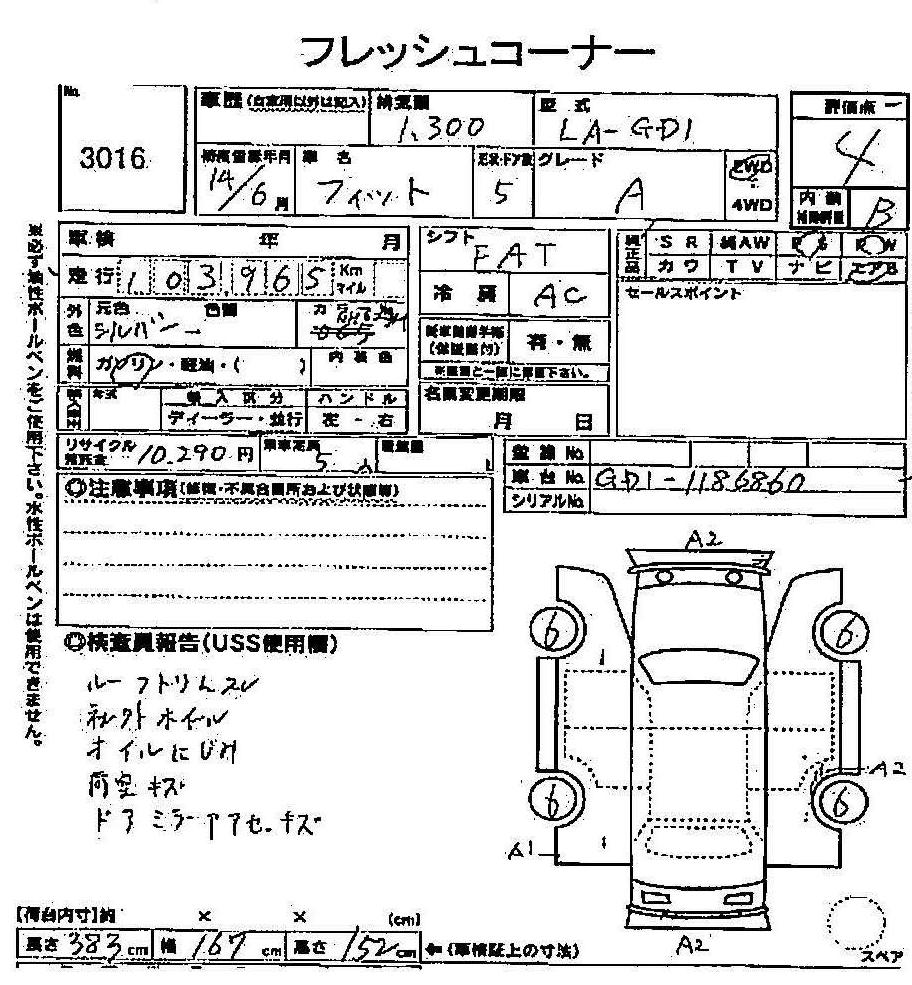 フレッシュコーナー
No.
3016
車歴(自家用以外は記入)
排気量
1,300
型式
LA-GD1
評価点
4
初度登録年月
14/6月
車名
フィット
ドア数
5
グレード
A
2WD
4WD
内装
補助評価
B
車検 年 月
シフト
FAT
純正品
SR
純AW
PS
PW
カワ
TV
ナビ
エアB
走行
103965
Km
マイル
冷房
AC
セールスポイント
外色
元色
シルバー
色替
燃料
ガソリン・軽油・( )
内装色
有・無
輸入車
年式
輸入区分
ディーラー・並行
ハンドル
左-右
名義変更期限
月 日
リサイクル
預託金
10,290円
乗車定員
5人
積載量
登録No.
車台No.
GD1-1186860
シリアルNo.
◎注意事項(修復・不具合箇所および状態等)
※必ず油性ボールペンをご使用下さい。水性ボールペンは使用できません。
◎検査員報告(USS使用欄)
ルーフトリムスレ
社外ホイル
オイルにじみ
荷室キズ
ドアミラー キズ
A2
6
6
A2
6
6
A1
A2
スペア
【荷台内寸】約 × × (cm)
長さ 383cm
幅 167cm
高さ 152cm
⇐(車検証上の寸法)